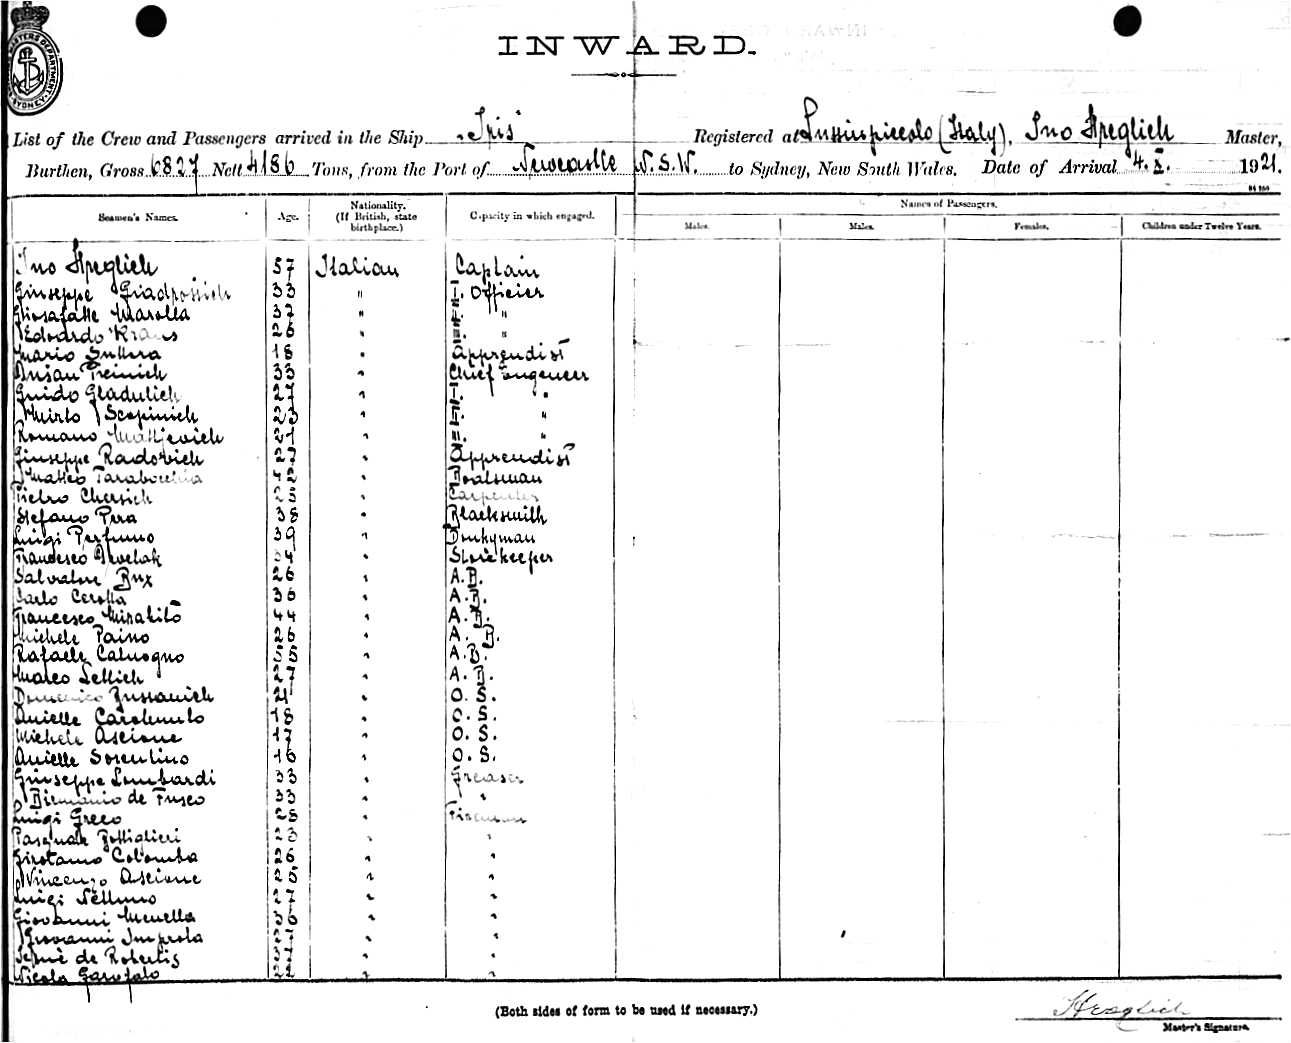 MASTERS DEPARTMENT SYDNEY
INWARD.
List of the Crew and Passengers arrived in the Ship "Iris" Registered at Lussinpiccolo (Italy), Ino Hreglich Master,
Burthen, Gross 6827 Nett 4186 Tons, from the Port of Newcastle N.S.W. to Sydney, New South Wales. Date of Arrival 4. X. 1921.
Seamen's Names. Age. Nationality. (If British, state birthplace.) Capacity in which engaged. Names of Passengers.
Males. Males. Females. Children under Twelve Years.
Ino Hreglich 57 Italian Captain
Giuseppe 33 " I. Officier
Marolla 37 " II. "
Edoardo Kraus 26 " III. "
Mario 18 " Apprendist
33 " Chief Engeneer
Guido Gladulich 27 " I. "
Mirto Scopinich 23 " II. "
Romano Mattjevich 21 " III. "
Giuseppe Radovich 27 " Apprendist
Matteo Tarabochia 42 " Boatsman
Pietro Chersich 25 " Carpenter
Stefano Pera 38 " Blacksmith
Luigi Perfumo 39 " Donkyman
Francesco 34 " Storekeeper
Salvatore Bux 26 " A. B.
Carlo Cerotta 36 " A. B.
Francesco Mirabito 44 " A. B.
Michele Paino 26 " A. B.
Rafaele Caluogno 55 " A. B.
Marco Lettich 27 " A. B.
Domenico Bussanich 21 " O. S.
Anielle Carotenuto 18 " O. S.
Michele Ascione 17 " O. S.
Anielle Sorentino 16 " O. S.
Giuseppe Lombardi 33 " Greaser
de Fusco 33 " "
Luigi Greco 28 " Fireman
Pasquale Bottiglieri 23 " "
Girolamo Colomba 26 " "
Vincenzo Ascione 25 " "
Luigi 27 " "
Giovanni Menella 36 " "
Giovanni Improta " "
de Robertis " "
Nicola Garofalo " "
(Both sides of form to be used if necessary.)
Hreglich
Master's Signature.